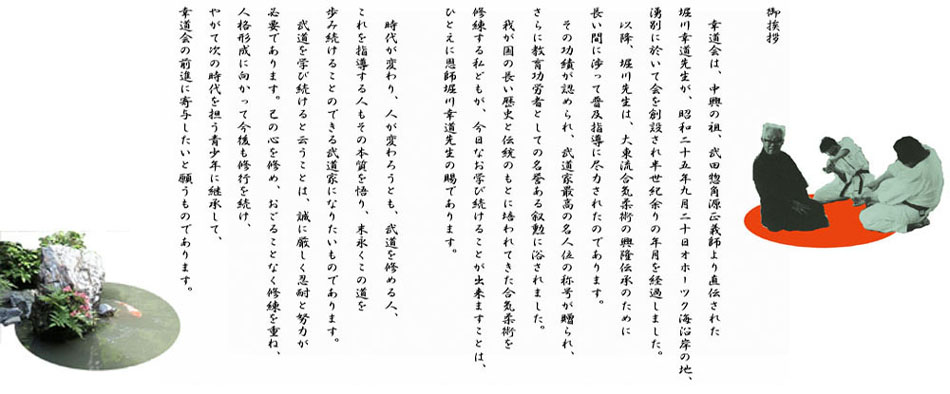 御挨拶
幸道会は、中興の祖、武田惣角源正義師より直伝された
堀川幸道先生が、昭和二十五年九月二十日オホーツク海沿岸の地、
湧別に於いて会を創設され半世紀余りの年月を経過しました。
以降、堀川先生は、大東流合気柔術の興隆伝承のために
長い間に渉って普及指導に尽力されたのであります。
その功績が認められ、武道家最高の名人位の称号が贈られ、
さらに教育功労者としての名誉ある叙勲に浴されました。
我が国の長い歴史と伝統のもとに培われてきた合気柔術を
修練する私どもが、今日なお学び続けることが出来ますことは、
ひとえに恩師堀川幸道先生の賜であります。
時代が変わり、人が変わろうとも、武道を修める人、
これを指導する人もその本質を悟り、末永くこの道を
歩み続けることのできる武道家になりたいものであります。
武道を学び続けると云うことは、誠に厳しく忍耐と努力が
必要であります。己の心を修め、おごることなく修練を重ね、
人格形成に向かって今後も修行を続け、
やがて次の時代を担う青少年に継承して、
幸道会の前進に寄与したいと願うものであります。